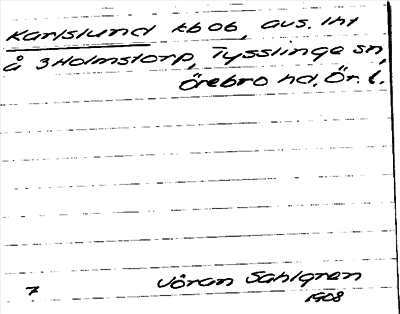 Karlslund kb 06, avs. lht
å 3 Holmstorp, Tysslinge sn,
Örebro hd. Ör. l.
Jöran Sahlgren
7 1908